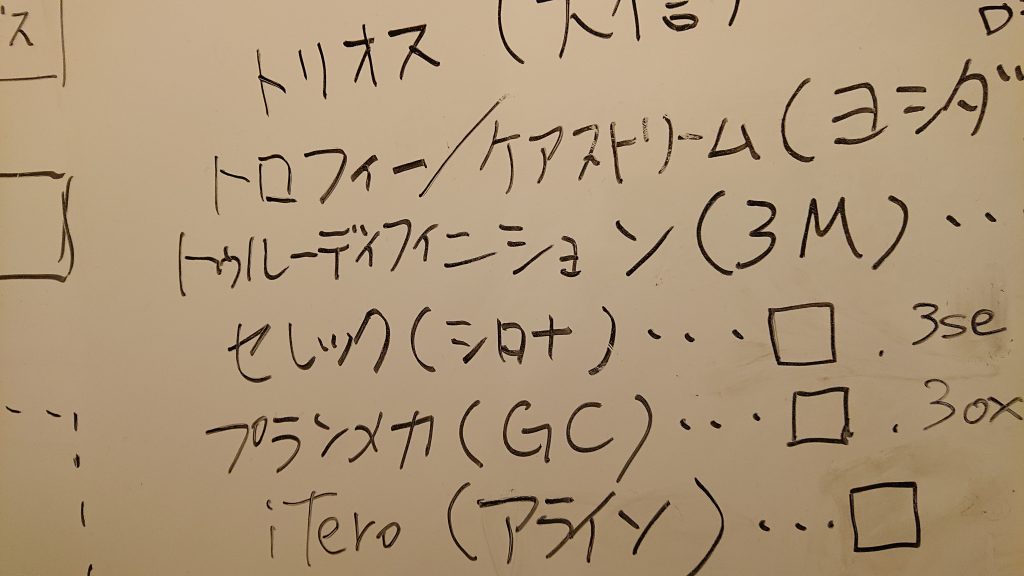 トリオス (大信)
トロフィー/ケアストリーム (ヨシダ
トゥルーディフィニション (3M) ‥
セレック (シロナ) … □ . 3se
プランメカ (GC) … □ . 3ox
iTero (アライン) … □